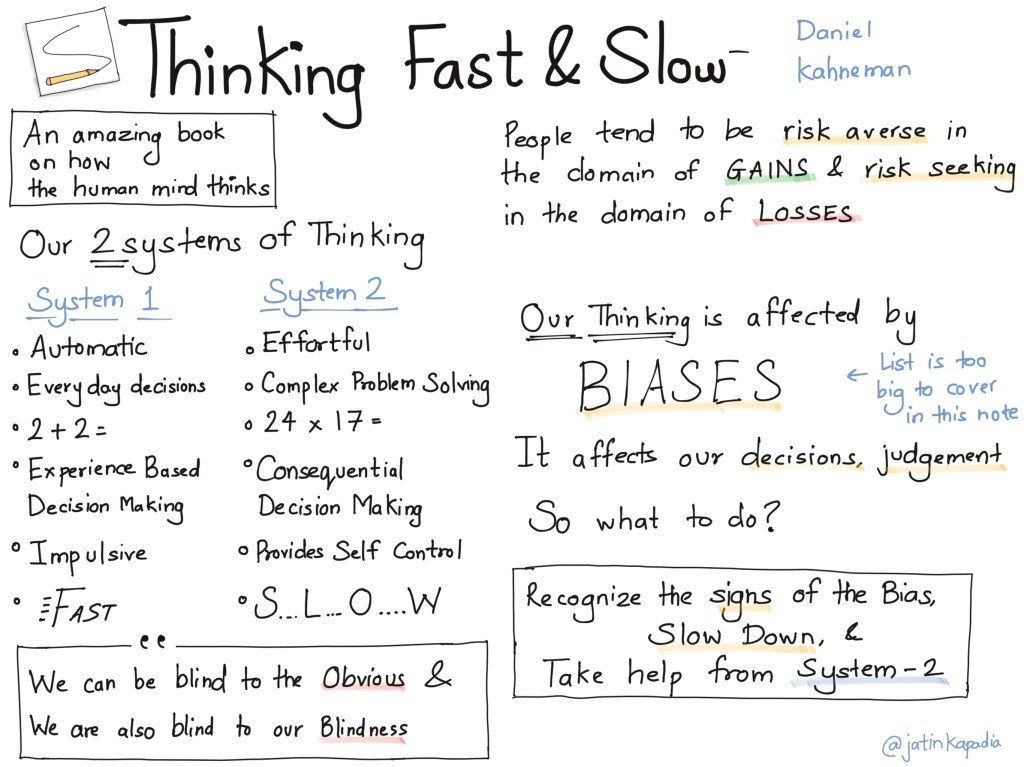 Thinking Fast & Slow –
Daniel
Kahneman
An amazing book
on how
the human mind thinks
Our 2 systems of Thinking
System 1
• Automatic
• Every day decisions
• 2 + 2 =
• Experience Based
Decision Making
• Impulsive
• FAST
System 2
• Effortful
• Complex Problem Solving
• 24 x 17 =
• Consequential
Decision Making
• Provides Self Control
• S...L...O....W
We can be blind to the Obvious &
We are also blind to our Blindness
People tend to be risk averse in
the domain of GAINS & risk seeking
in the domain of LOSSES
Our Thinking is affected by
BIASES
← List is too
big to cover
in this note
It affects our decisions, judgement
So what to do?
Recognize the signs of the Bias,
Slow Down, &
Take help from System-2
@jatinkapadia